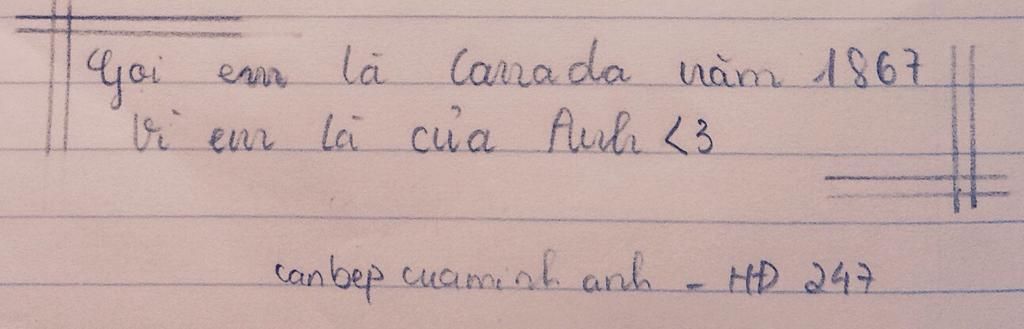 Gọi em là Canada năm 1867
Vì em là của Anh <3
canbep cuaminh anh - HĐ 247